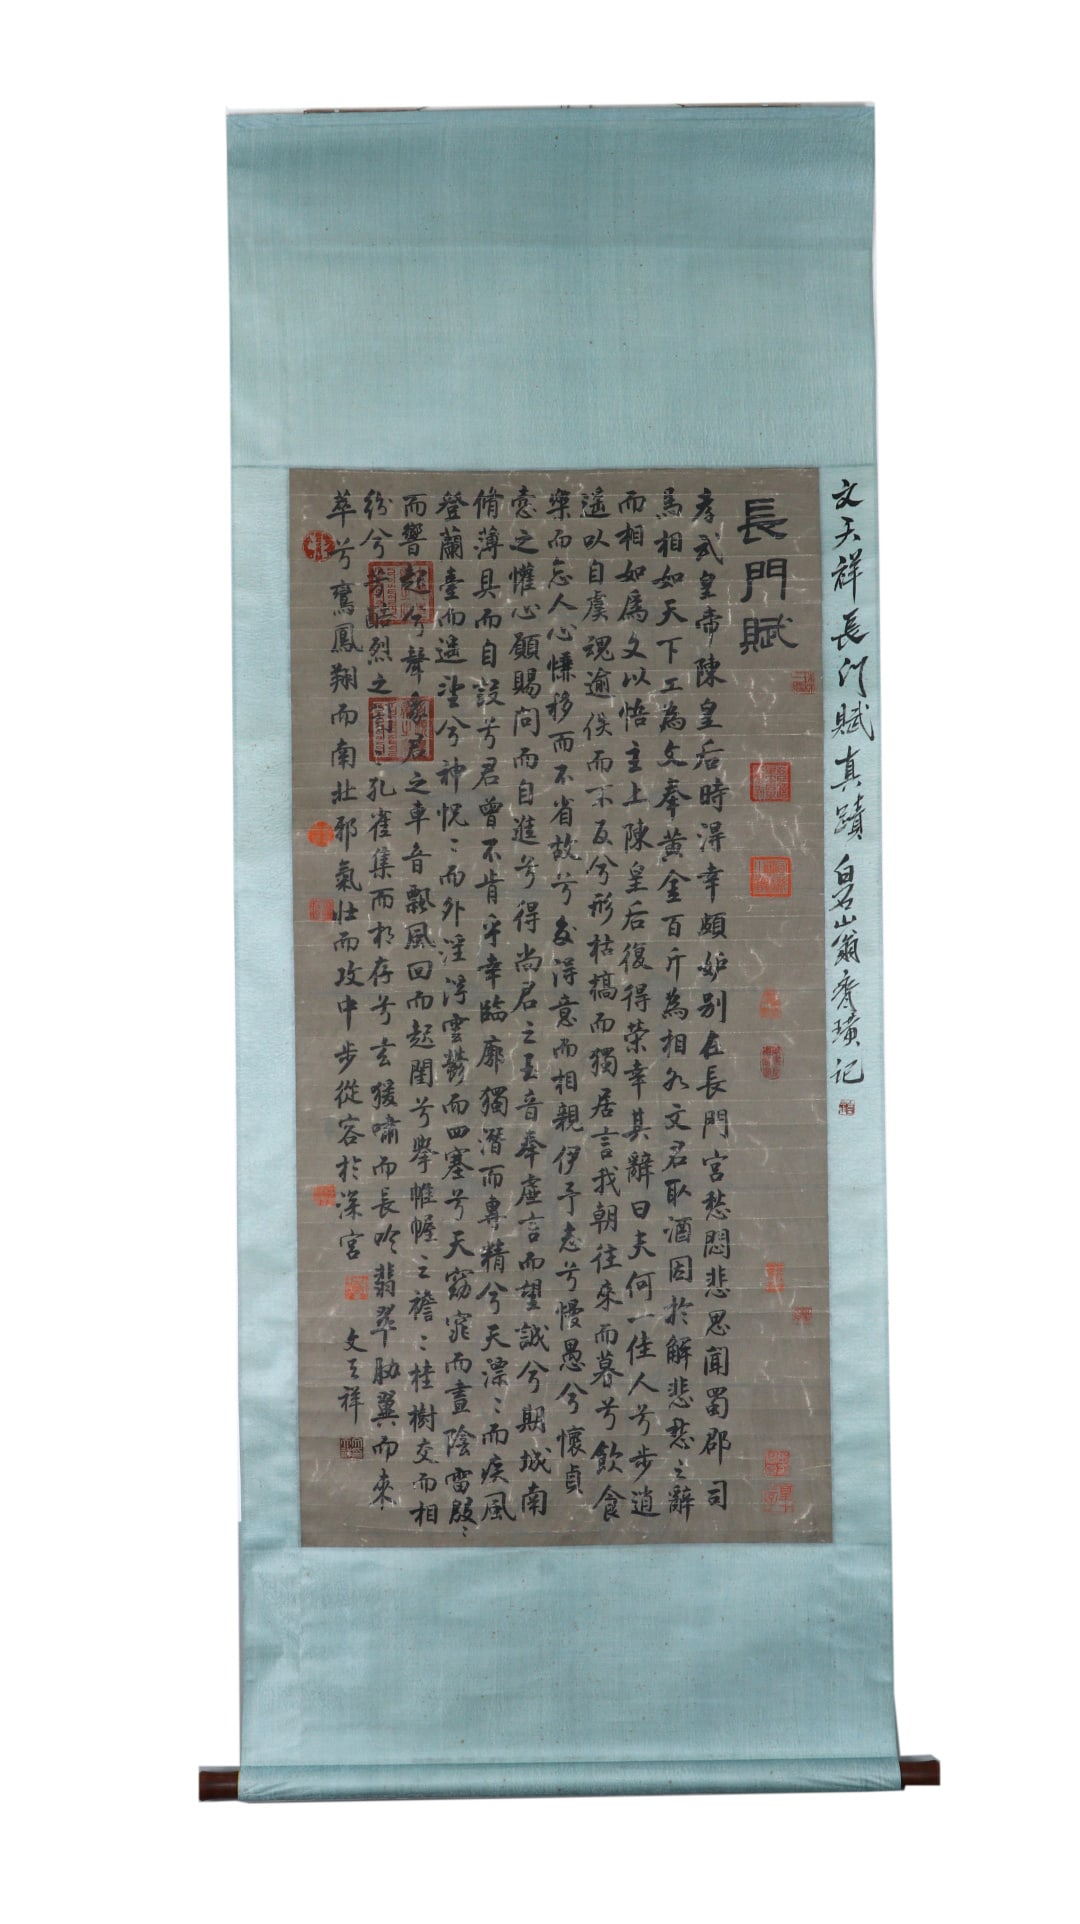 文天祥長門賦真蹟 白石山翁齊璜記
長門賦
孝武皇帝陳皇后時得幸頗妒别在長門宮愁悶悲思聞蜀郡司
馬相如天下工為文奉黄金百斤為相如文君取酒因於解悲愁之辭
而相如爲文以悟主上陳皇后復得榮幸其辭曰夫何一佳人兮步逍
遙以自虞魂逾佚而不反兮形枯槁而獨居言我朝往來而暮兮飲食
樂而忘人心慊移而不省故兮交得意而相親伊予志兮慢愚兮懷貞
慤之懽心願賜問而自進兮得尚君之玉音奉虛言而望誠兮期城南
脩薄具而自設兮君曾不肯乎幸臨廓獨潛而專精兮天漂〻而疾風
登蘭臺而遥望兮神怳〻而外淫浮雲鬱而四塞兮天窈窕而晝陰雷殷〻
而響起兮聲象君之車音飄風回而起閨兮擧帷幄之襜〻桂樹交而相
紛兮芳酷烈之誾〻孔雀集而相存兮玄猨嘯而長吟翡翠胁翼而來
萃兮鸞鳳翔而南壯邪氣壯而攻中步從容於深宮
文天祥